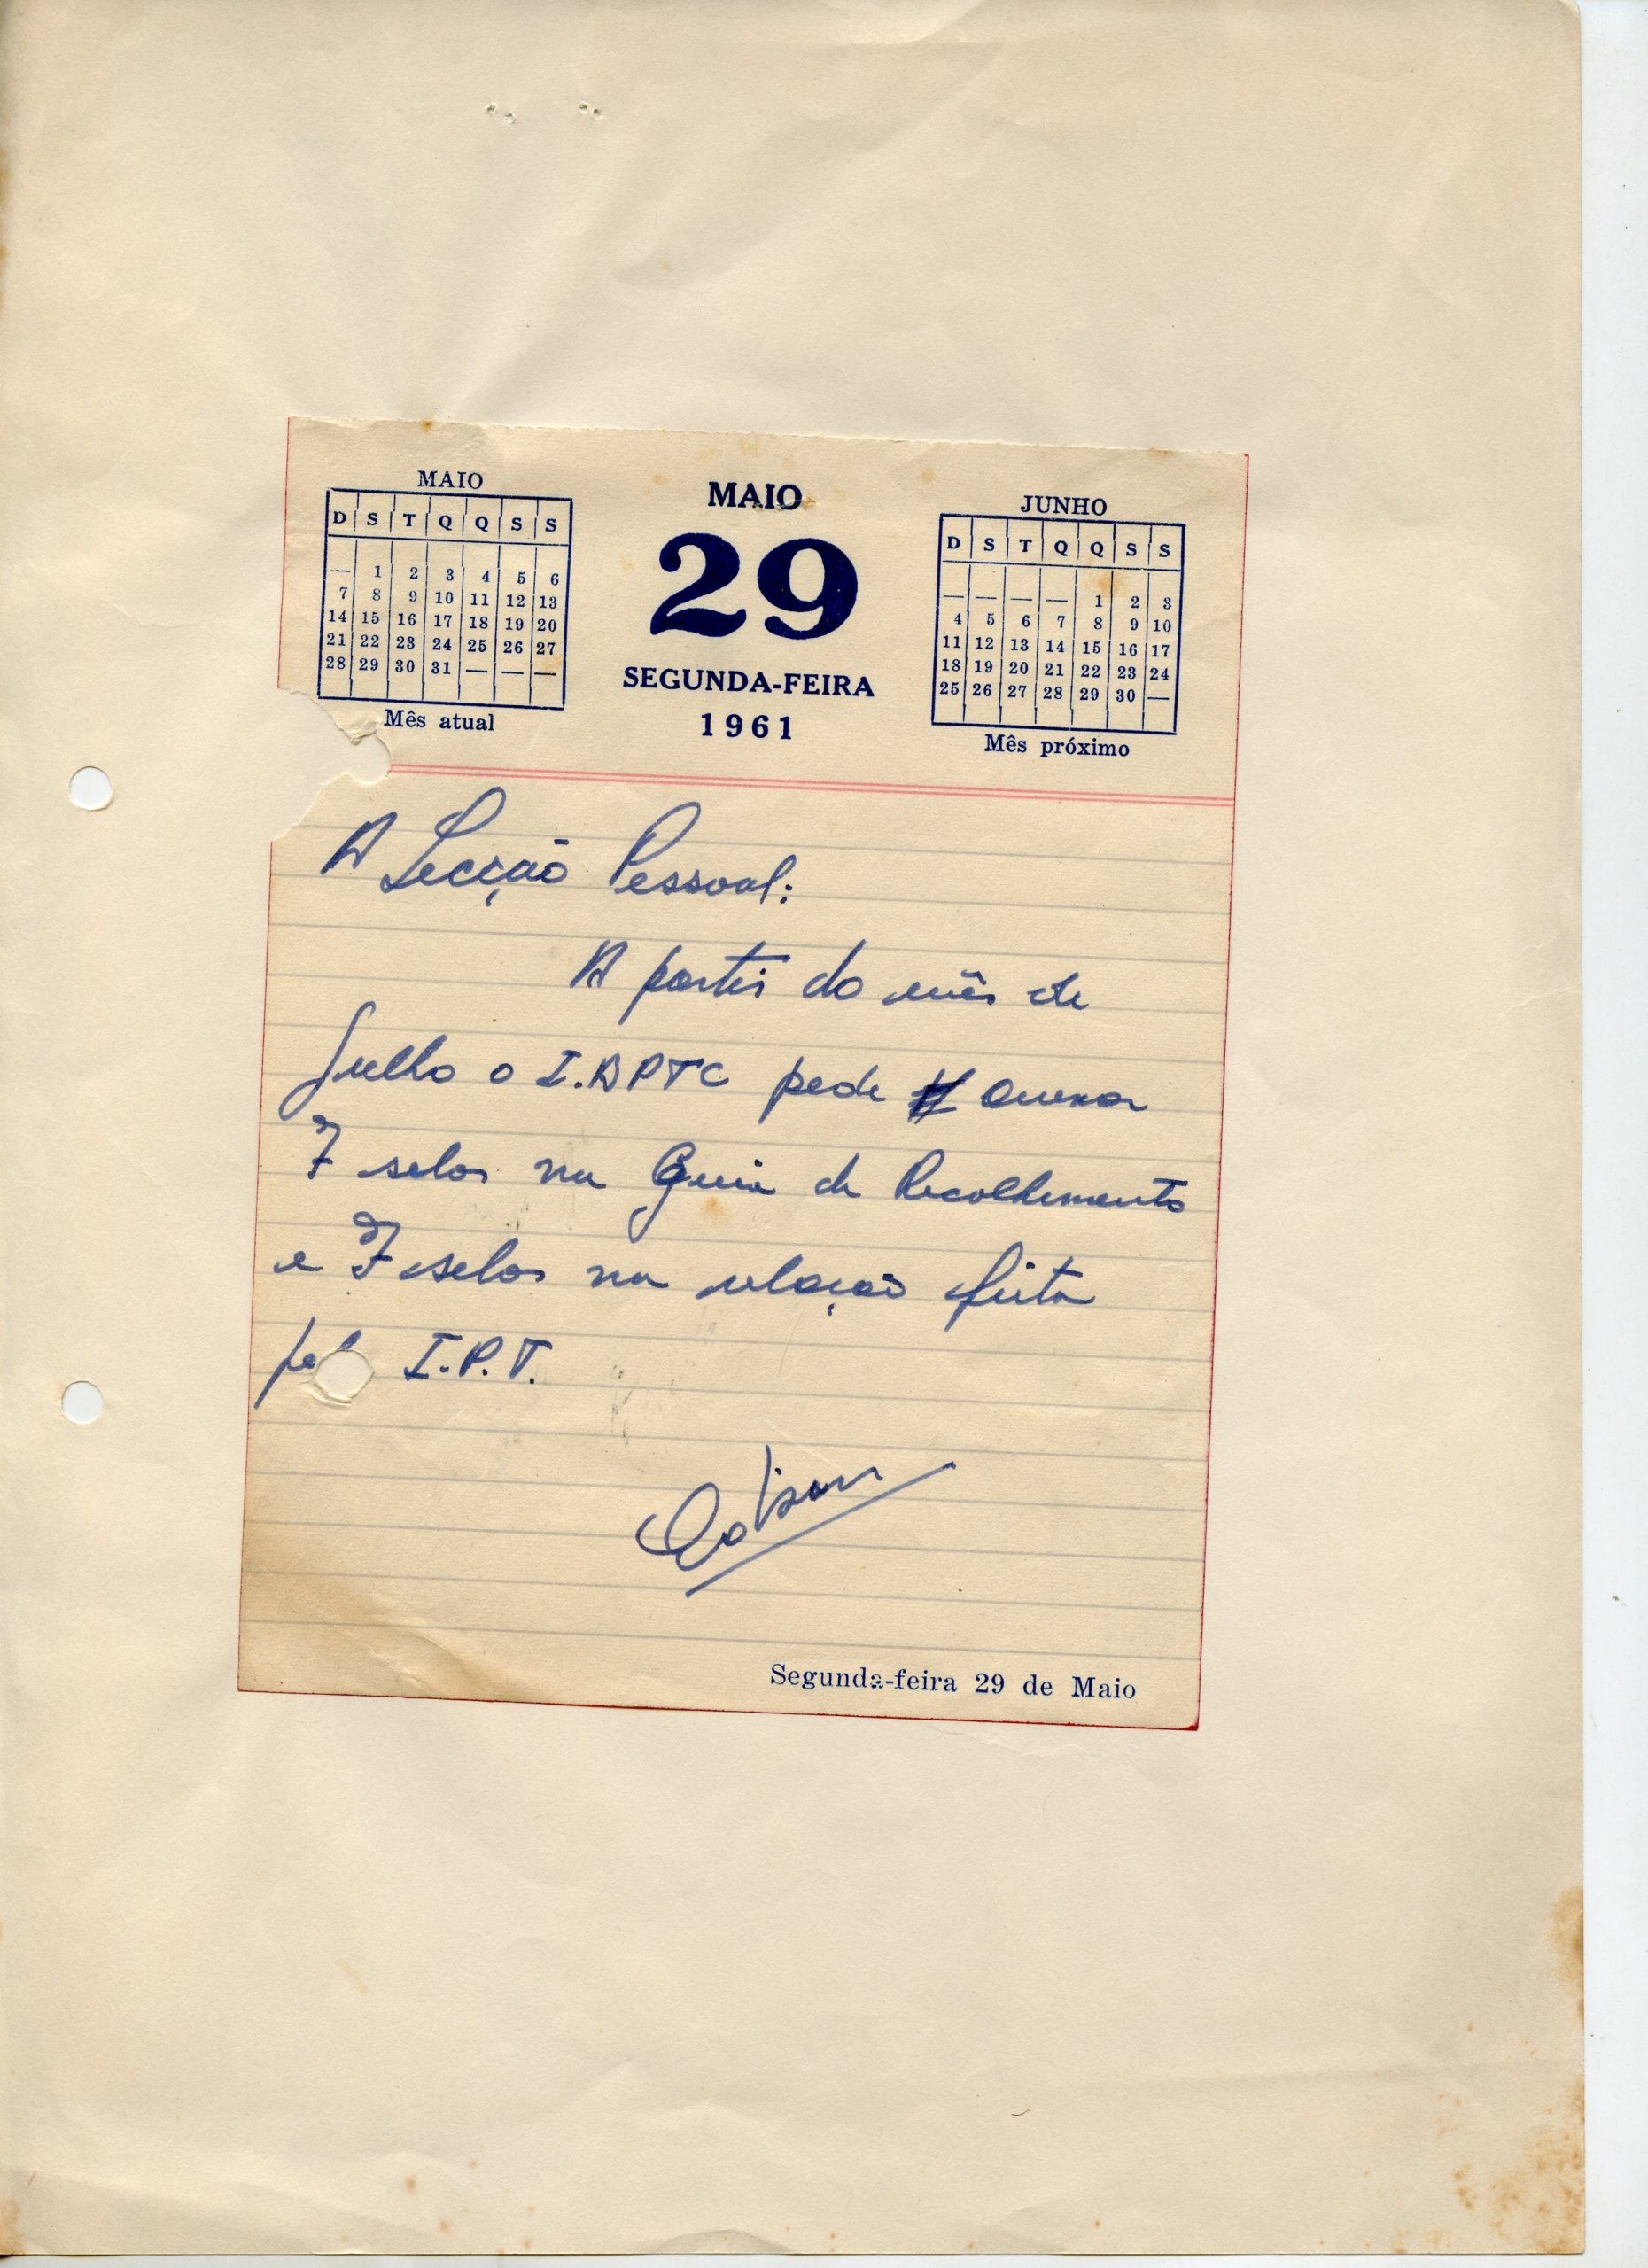 MAIO
D S T Q Q S S
— 1 2 3 4 5 6
7 8 9 10 11 12 13
14 15 16 17 18 19 20
21 22 23 24 25 26 27
28 29 30 31 — — —
Mês atual
MAIO
29
SEGUNDA-FEIRA
1961
JUNHO
D S T Q Q S S
— — — — 1 2 3
4 5 6 7 8 9 10
11 12 13 14 15 16 17
18 19 20 21 22 23 24
25 26 27 28 29 30 —
Mês próximo
A Secção Pessoal:
A partir do mês de
Julho o I.APTC pede anexar
7 selos na Guia de Recolhimento
e 7 selos na relação feita
pel I.P.T.
Segunda-feira 29 de Maio